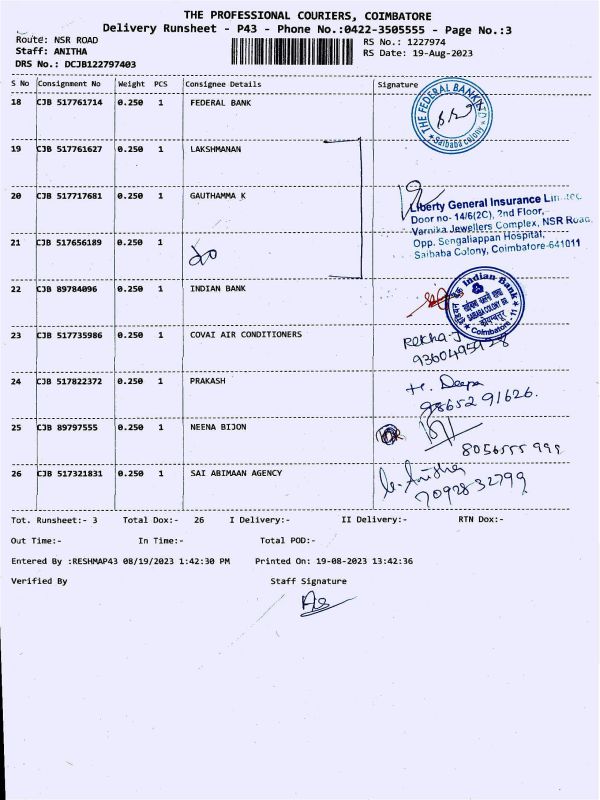 THE PROFESSIONAL COURIERS, COIMBATORE
Delivery Runsheet - P43 - Phone No.:0422-3505555 - Page No.:3
Route: NSR ROAD
RS No.: 1227974
Staff: ANITHA
RS Date: 19-Aug-2023
DRS No.: DCJB122797403
S No Consignment No Weight PCS Consignee Details Signature
18 CJB 517761714 0.250 1 FEDERAL BANK
THE FEDERAL BANK LTD
★ Saibaba colony ★
19 CJB 517761627 0.250 1 LAKSHMANAN
20 CJB 517717681 0.250 1 GAUTHAMMA K
Liberty General Insurance Limited
Door no- 14/6(2C), 2nd Floor,
Varnika Jewellers Complex, NSR Road,
Opp. Sengaliappan Hospital,
Saibaba Colony, Coimbatore-641011
21 CJB 517656189 0.250 1
22 CJB 89784096 0.250 1 INDIAN BANK
Indian Bank
SAIBABA COLONY BR
Coimbatore - 11
23 CJB 517735986 0.250 1 COVAI AIR CONDITIONERS
Rekha J
24 CJB 517822372 0.250 1 PRAKASH
Deepa
98652 91626.
25 CJB 89797555 0.250 1 NEENA BIJON
8056555 999
26 CJB 517321831 0.250 1 SAI ABIMAAN AGENCY
Anitha
70928 32799
Tot. Runsheet:- 3 Total Dox:- 26 I Delivery:- II Delivery:- RTN Dox:-
Out Time:- In Time:- Total POD:-
Entered By :RESHMAP43 08/19/2023 1:42:30 PM Printed On: 19-08-2023 13:42:36
Verified By Staff Signature